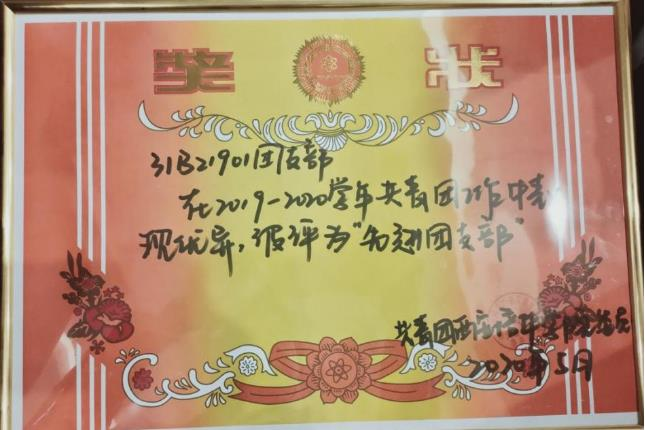 奖状
31B21901团支部
在2019-2020学年共青团工作中表
现优异，被评为“先进团支部”
共青团
2020年5月